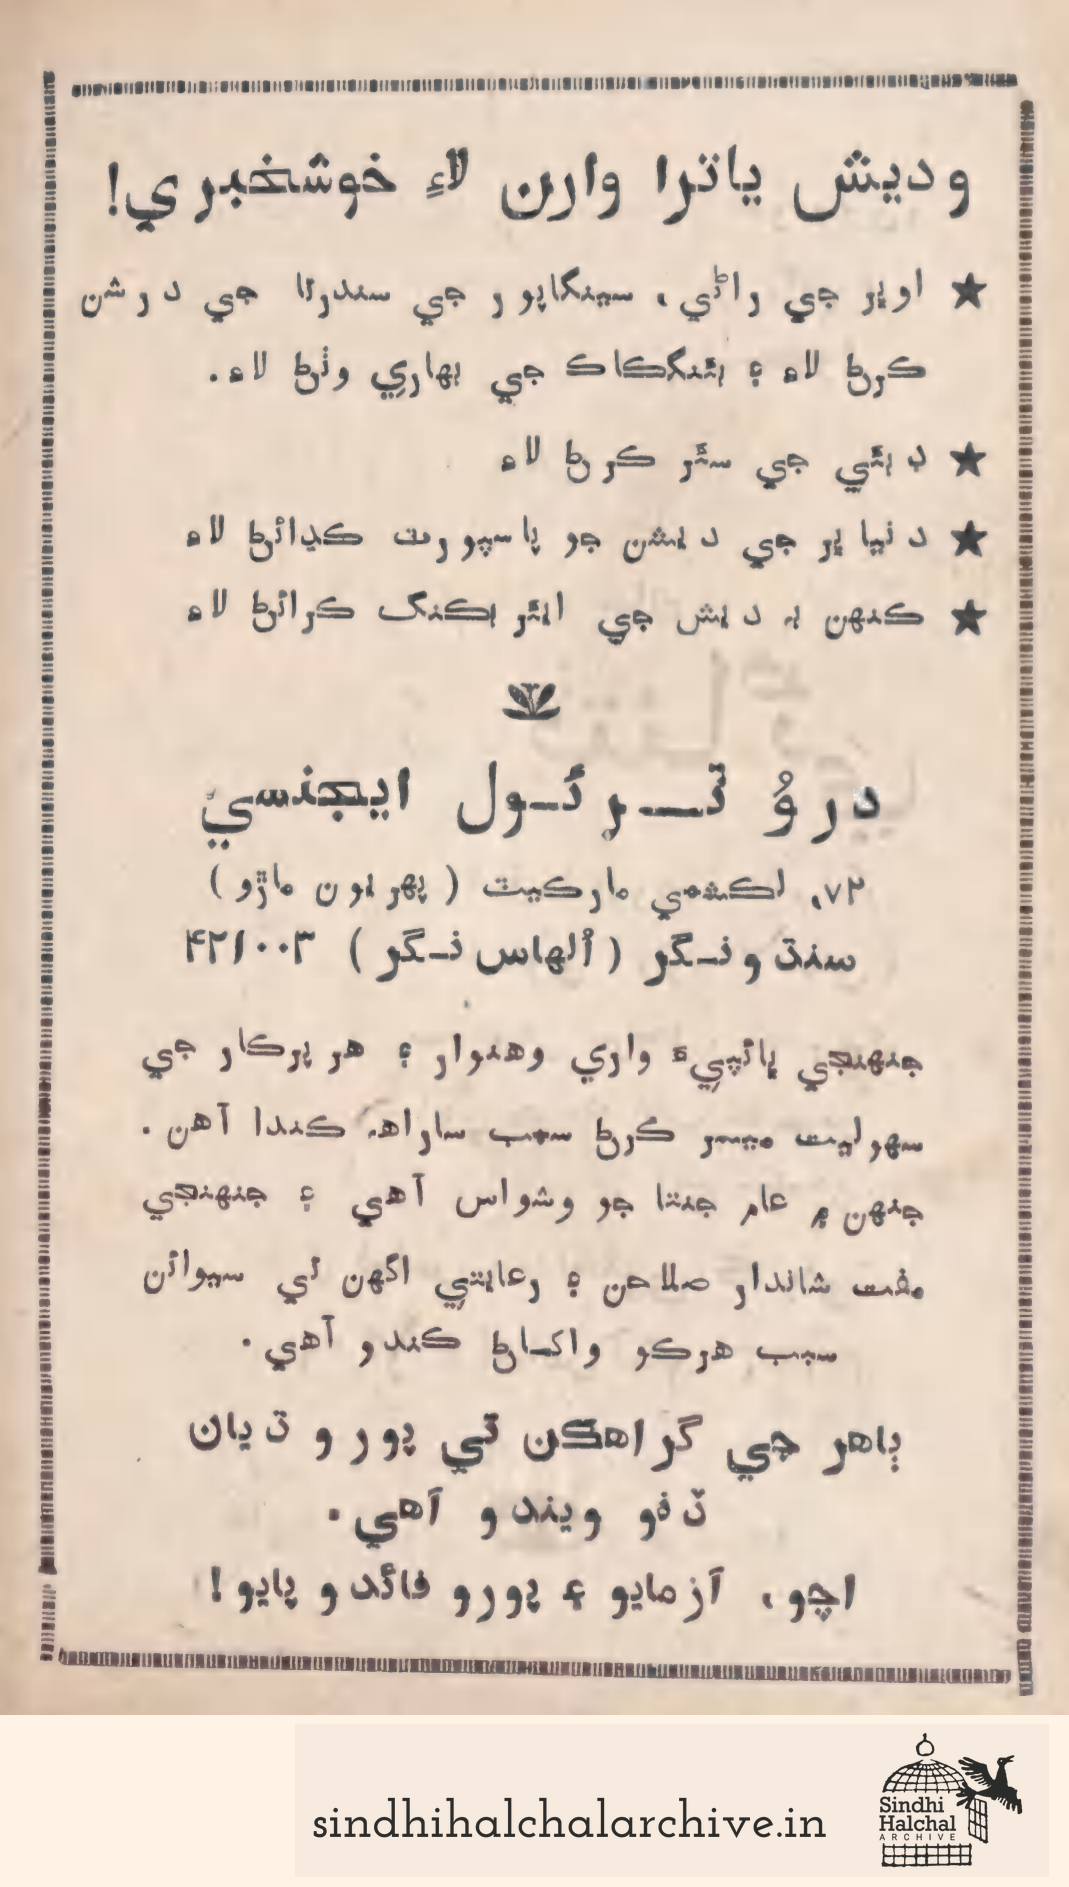 وديش ياترا وارن لاءِ خوشخبري!
★ اوڀر جي راڻي، سينگاپور جي سندرتا جي درشن
ڪرڻ لاءِ ۽ بئنگڪاڪ جي بهاري وٺڻ لاءِ.
★ دبئي جي سئر ڪرڻ لاءِ
★ دنيا ڀر جي ديشن جو پاسپورٽ ڪڍائڻ لاءِ
★ ڪنهن بہ ديش جي ايئر بڪنگ ڪرائڻ لاءِ
درؤ ٽرئول ايجنسي
۷۲، لڪشمي مارڪيٽ (پهريون ماڙو)
سنت ونگر (اُلهاس نگر) ۴۲۱۰۰۳
جنهنجي ڀائپيءَ واري وهنوار ۽ هر پرڪار جي
سهوليت ميسر ڪرڻ سبب ساراهہ ڪندا آهن.
جنهن ۾ عام جنتا جو وشواس آهي ۽ جنهنجي
مفت شاندار صلاحن ۽ رعايتي اگهن تي سيوائن
سبب هرڪو واکاڻ ڪندو آهي.
ٻاهر جي گراهڪن تي پورو ڌيان
ڏنو ويندو آهي.
اچو، آزمايو ۽ پورو فائدو پايو!
sindhihalchalarchive.in
Sindhi
Halchal
ARCHIVE